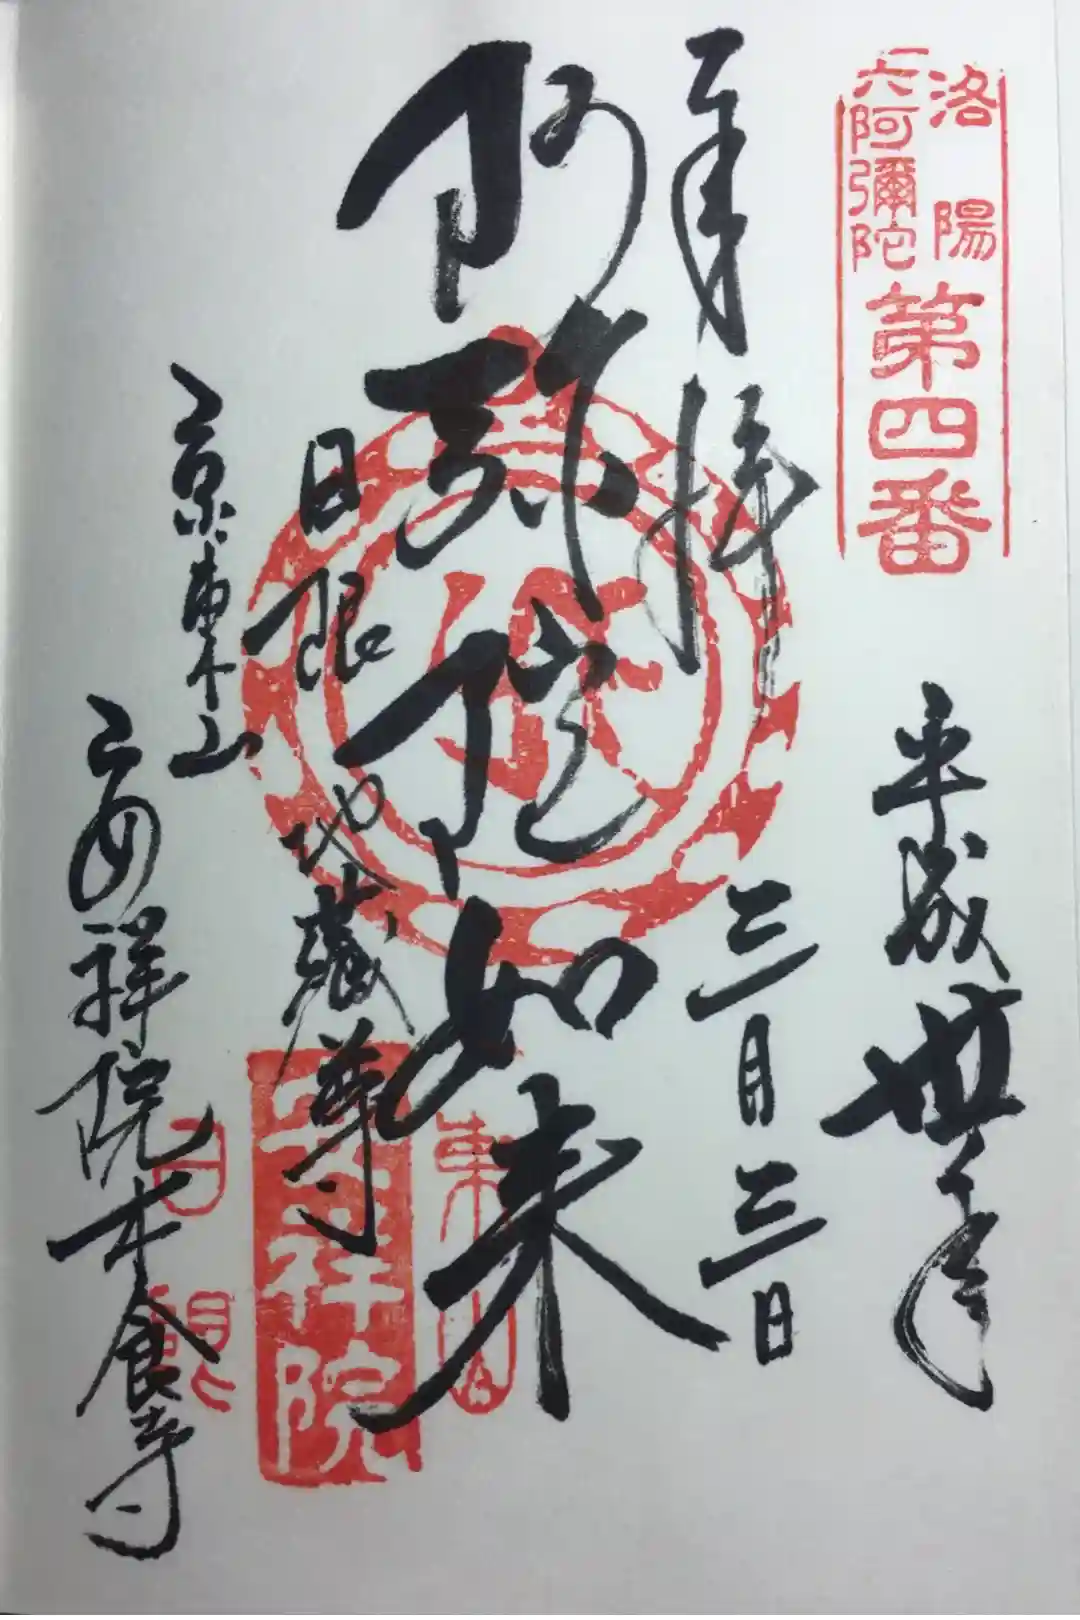 洛陽
六阿彌陀
第四番
奉拝
平成卅年
三月三日
阿弥陀如来
日限地蔵尊
京東山
安祥院木食寺
東山
安祥院
日限